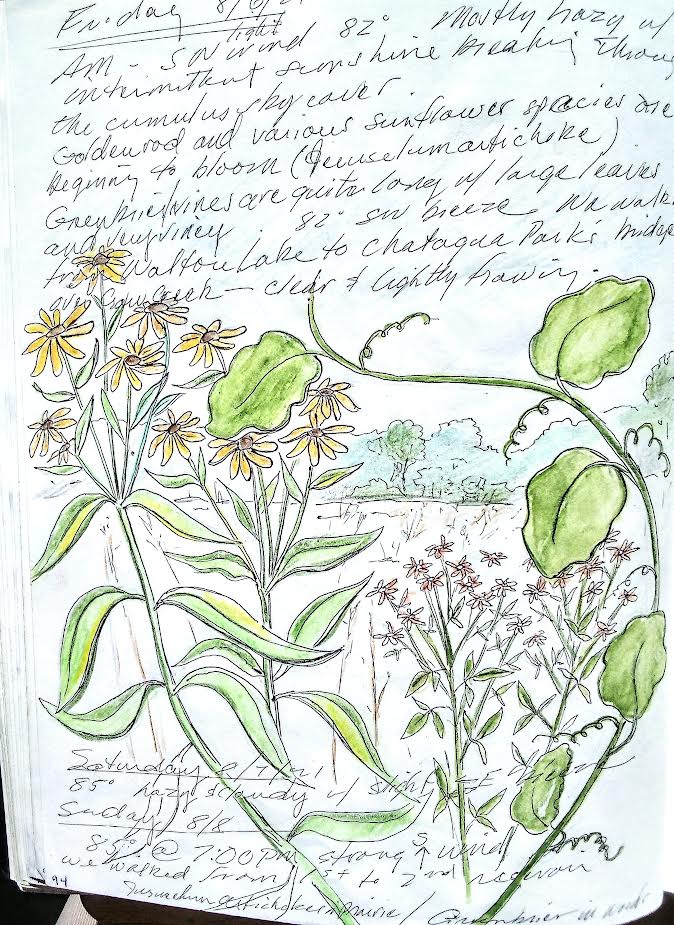 Friday 8/6/21
AM - SW light wind 82° Mostly hazy w/
intermittent sunshine breaking through
the cumulus sky cover.
Goldenrod and various sunflower species are
beginning to bloom (Jeruselum artichoke)
Greenbrier vines are quite long w/ large leaves
and very viney. 82° SW breeze We walk
from Walton Lake to Chataqua Parks bridge
over Creek - clear & lightly flowing.
Saturday 8/7/21
85° hazy & cloudy w/ slight SE
Sunday 8/8
85° @ 7:00 PM strong S wind
we walked from 1st to 2nd
94 artichoke prairie / Greenbrier in woods